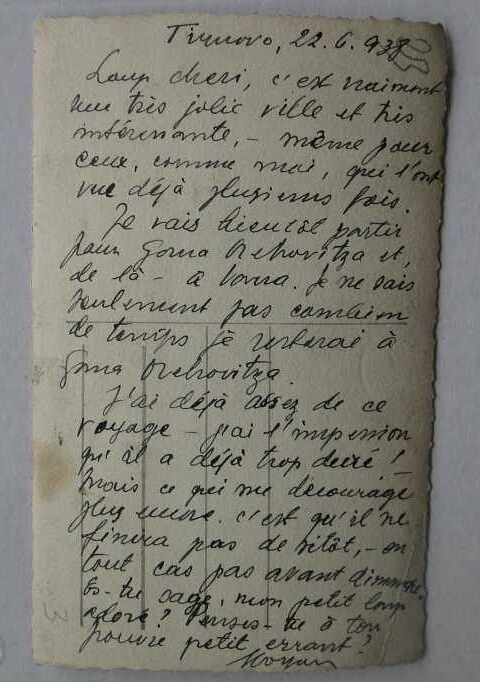 Tirnovo, 22.6.938
Loup cheri, c'est vraiment
une très jolie ville et très
intéressante, - même pour
ceux, comme moi, qui l'ont
vue déjà plusieurs fois.
Je vais bientôt partir
pour Gorna Orehovitza et,
de là - à . Je ne sais
seulement pas combien
de temps je resterai à
Gorna Orehovitza.
J'ai déjà assez de ce
voyage - j'ai l'impression
qu'il a déjà trop duré!
Mais ce qui me décourage
plus encore, c'est qu'il ne
finira pas de sitôt, - en
tout cas pas avant dimanche.
Es-tu sage, mon petit loup
adoré? Penses-tu à ton
pauvre petit errant?